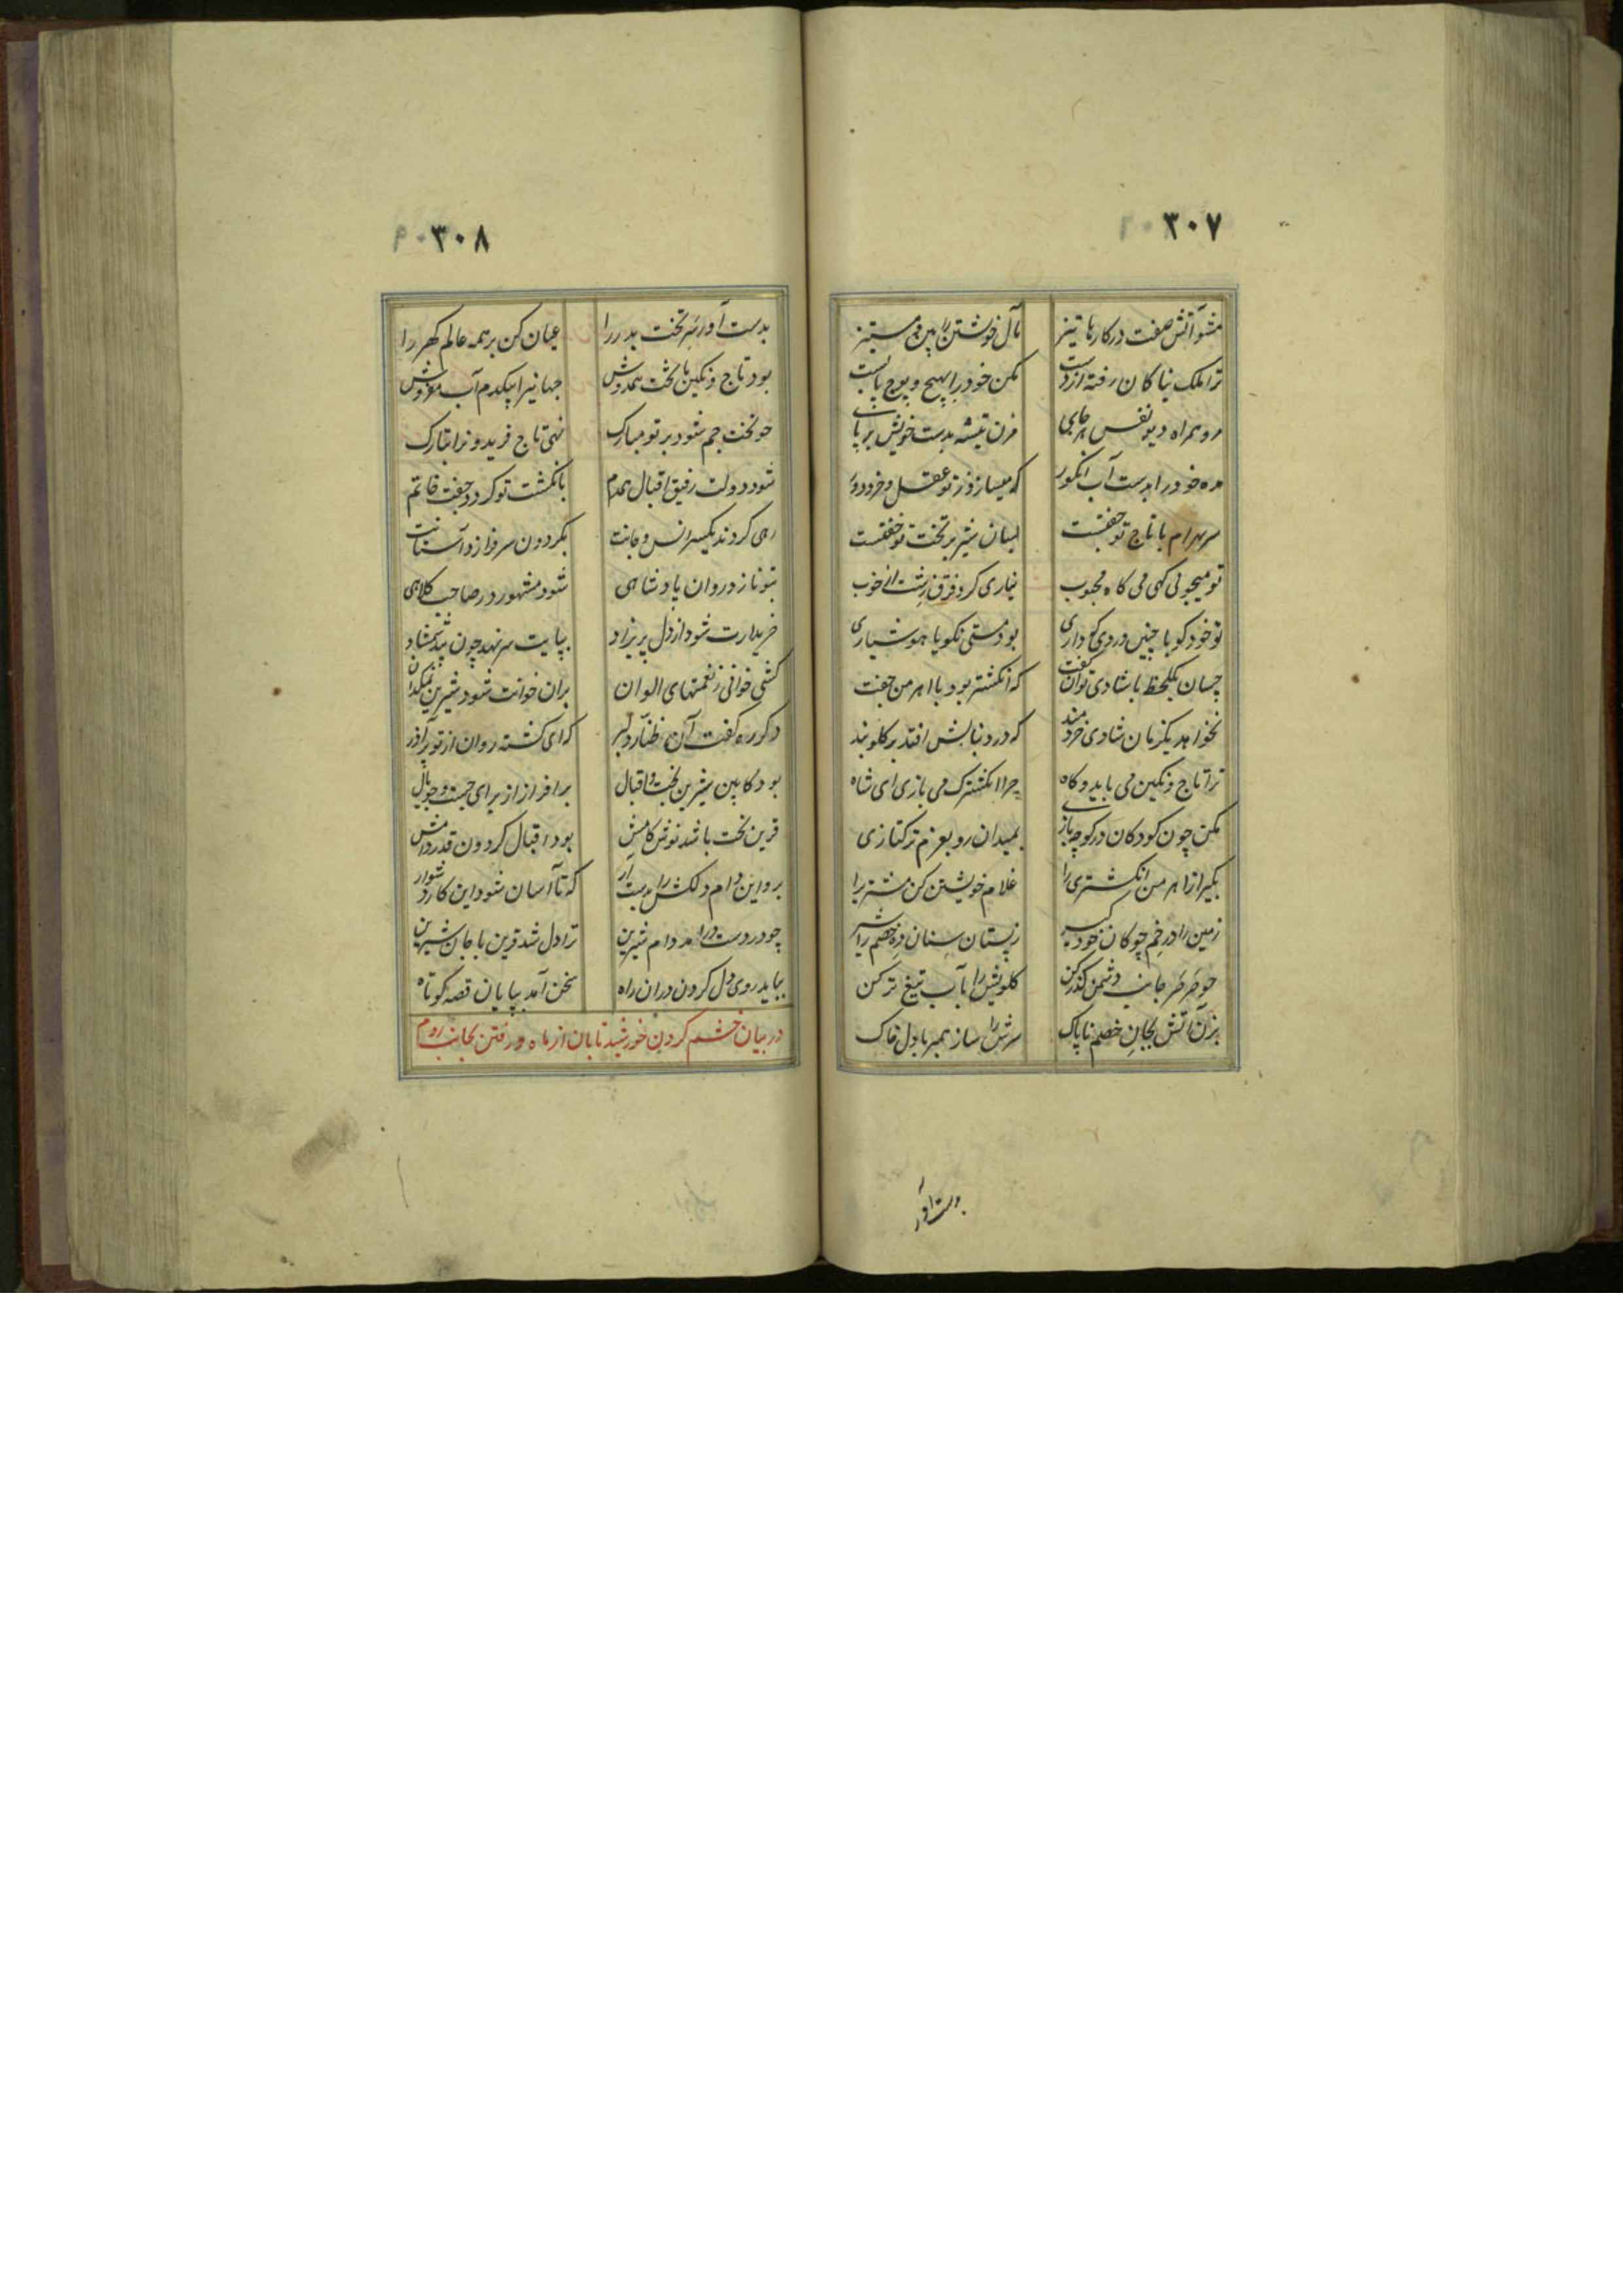 ۳۰۷
مشو آتش صفت در کارها تیز مآل خوشتن را بین و مستیز
ترا ملک نیاکان رفته از دست مکن خود را بهیچ و پوچ پابست
مرو همراه دیو نفس هر جای مزن تیشه بدست خویش بر پای
مده خود را بدست آب انکور که میسازد ز تو عقل و خرد دور
سر بهرام با تاج تو جفتست بسان شیر بر تخت تو خفتست
تو میجوئی کهی می کاه محبوب نیاری کرد فرق زشت از خوب
تو خود کو با چنین دردی که داری بود مستی نکو یا هوشیاری
چسان یکلحظه با شادی توان کفت که انکشتر بود با اهرمن جفت
نخواهد یکزمان شادی خردمند که در دنبالش افتد بر کلو بند
ترا تاج و نکین می باید و کاه چرا انکشترک می بازی ای شاه
مکن چون کودکان در کوچه بازی بمیدان رو بعزم ترکتازی
بکیر از اهرمن انکشتری را غلام خویشتن کن مشتری را
زمین را در خم چوکان خود کیر ز پستان سنان ده خصم را شیر
چو صرصر جانب دشمن کذر کن کلویش را بآب تیغ تر کن
بزن آتش بجان خصم ناپاک سرش را ساز همبر با دل خاک
بدست آور
۳۰۸
بدست آور سر تخت پدر را عیان کن بر همه عالم کهر را
بود تاج و نکین با تخت همدوش جهانیرا بیکدم آب
چو تخت جم شود بر تو مبارک نهی تاج فریدونرا بتارک
شود دولت رفیق اقبال همدم بانکشت تو کردد جفت خاتم
رهی کردند یکسر انس و جانت بکردون سرفرازد آستانت
بتو نازد روان پادشاهی شود مشهور در صاحب کلاهی
خریدارت شود از دل پریزاد بپایت سر نهد چون بید شمشاد
کشی خوانی ز نعمتهای الوان بران خوانت شود شیرین نمکدان
دکر ره کفت آن طناز دلبر که ای کشته روان از تو پر آذر
بود کابین شیرین بخت و اقبال برافراز از برای جست و جو بال
قرین بخت باشد نوش کامش بود اقبال کردون قدر دامش
برو این دام دلکش را بدست آر که تا آسان شود این کار دشوار
چو در دست در آمد دام شیرین ترا دل شد قرین با جان شیرین
بباید روی دل کردن دران راه سخن آمد بپایان قصه کوتاه
در بیان خشم کردن خورشید تابان از ماه و رفتن بجانب روم